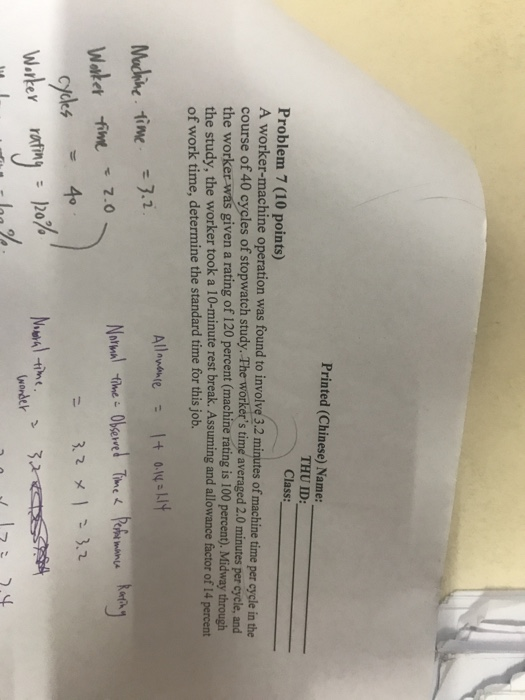 Printed (Chinese) Name:
THU ID:
Class:
Problem 7 (10 points)
A worker-machine operation was found to involve 3.2 minutes of machine time per cycle in the
course of 40 cycles of stopwatch study. The worker's time averaged 2.0 minutes per cycle, and
the worker was given a rating of 120 percent (machine rating is 100 percent). Midway through
the study, the worker took a 10-minute rest break. Assuming and allowance factor of 14 percent
of work time, determine the standard time for this job.
Machine time = 3.2.
Worker time = 2.0
cycles = 40
Worker rating = 120%
Allowance = 1 + 0.14 = 1.14
Normal time = Observed Time x Performance Rating
= 3.2 x 1 = 3.2
Normal time.
worker = 3.2
x 1.2 = 2.4